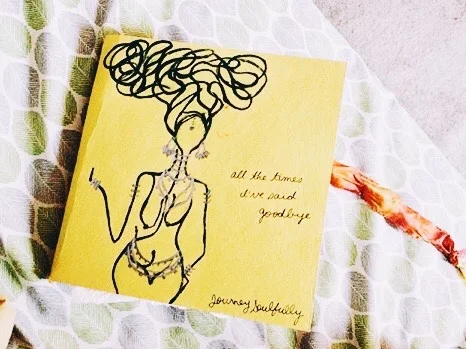 all the times
i've said
goodbye
Journey Soulfully